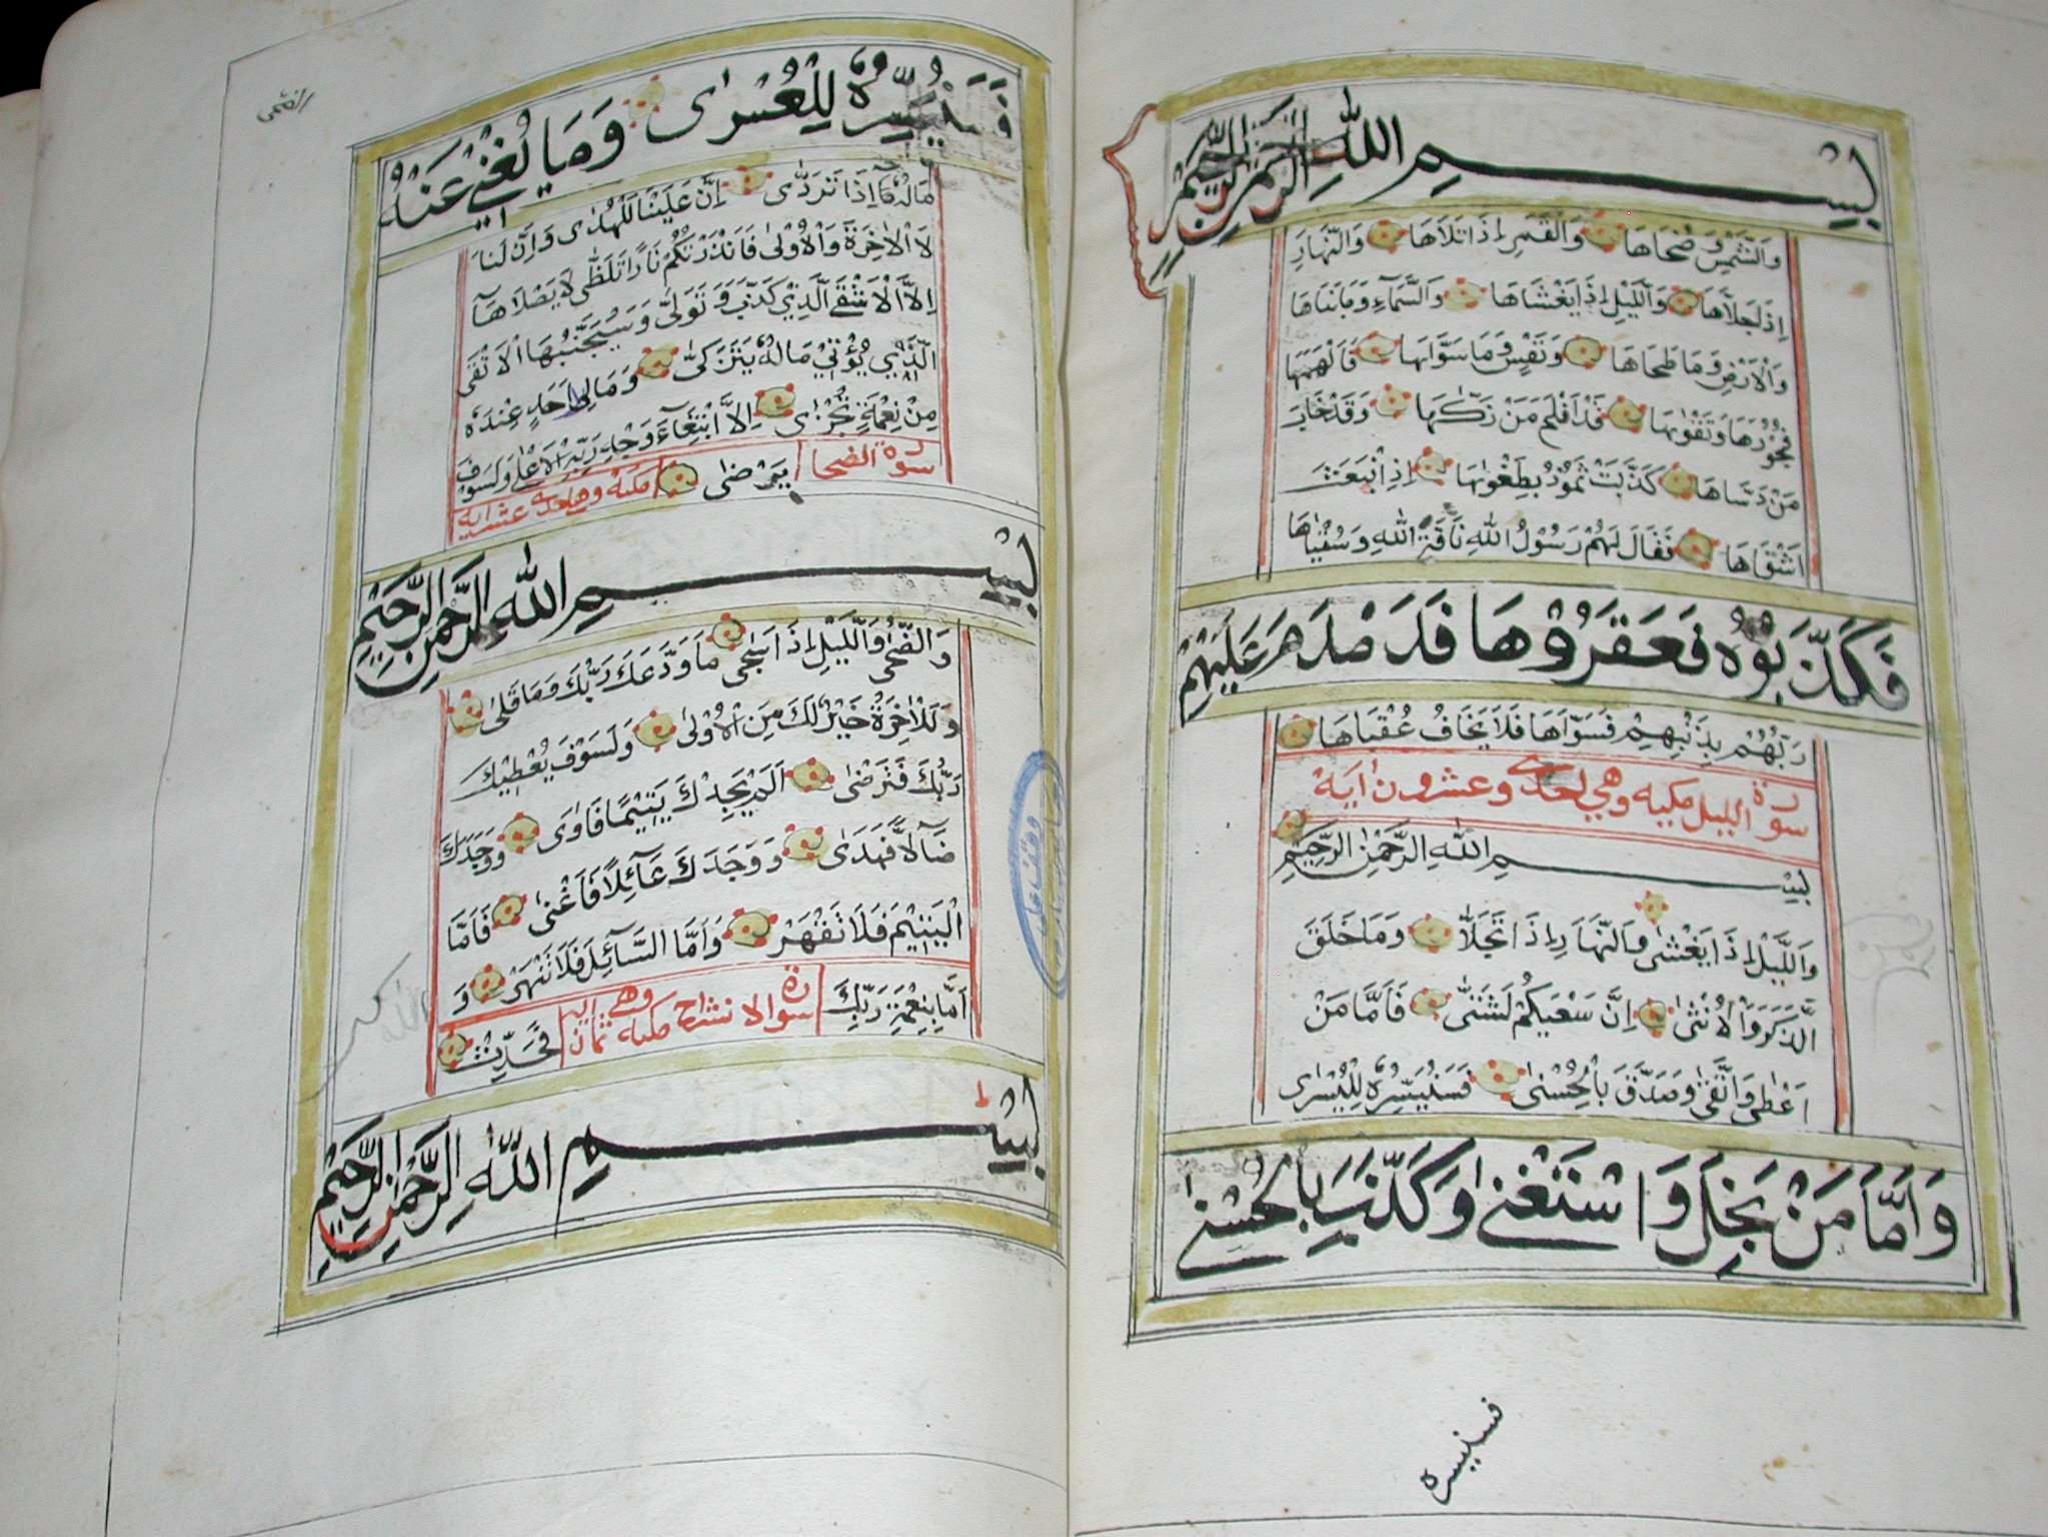 بِسْمِ اللهِ الرَّحْمٰنِ الرَّحِيْمِ
وَالشَّمْسِ وَضُحَاهَا وَالْقَمَرِ اِذَا تَلَاهَا وَالنَّهَارِ
اِذَا جَلَّاهَا وَاللَّيْلِ اِذَا يَغْشَاهَا وَالسَّمَآءِ وَمَا بَنَاهَا
وَالْاَرْضِ وَمَا طَحَاهَا وَنَفْسٍ وَمَا سَوَّاىهَا فَاَلْهَمَهَا
فُجُوْرَهَا وَتَقْوٰىهَا قَدْ اَفْلَحَ مَنْ زَكّٰىهَا وَقَدْ خَابَ
مَنْ دَسَّاهَا كَذَّبَتْ ثَمُوْدُ بِطَغْوٰىهَا اِذِ انْبَعَثَ
اَشْقَاهَا فَقَالَ لَهُمْ رَسُوْلُ اللهِ نَاقَةَ اللهِ وَسُقْيٰاهَا
فَكَذَّبُوْهُ فَعَقَرُوْهَا فَدَمْدَمَ عَلَيْهِمْ
رَبُّهُمْ بِذَنْبِهِمْ فَسَوّٰاهَا فَلَا يَخَافُ عُقْبَاهَا
سورة الليل مكيه وهي احدى وعشرون اية
بِسْمِ اللهِ الرَّحْمٰنِ الرَّحِيْمِ
وَاللَّيْلِ اِذَا يَغْشٰى وَالنَّهَارِ اِذَا تَجَلَّاٰ وَمَا خَلَقَ
الَّذَكَرَ وَالْاُنْثٰى اِنَّ سَعْيَكُمْ لَشَتّٰى فَاَمَّا مَنْ
اَعْطٰى وَاتَّقٰى وَصَدَّقَ بِالْحُسْنٰى فَسَنُيَسِّرُهُ لِلْيُسْرٰى
وَاَمَّا مَنْ بَخِلَ وَاسْتَغْنٰى وَكَذَّبَ بِالْحُسْنٰى
فسنيسره
فَسَنُيَسِّرُهُ لِلْعُسْرٰى وَمَا يُغْنِيْ عَنْهُ
مَالُهُ اِذَا تَرَدّٰى اِنَّ عَلَيْنَا لَلْهُدٰى وَاِنَّ لَنَا
لَاْلاٰخِرَةَ وَالْاُوْلٰى فَاَنْذَرْتُكُمْ نَارًا تَلَظّٰى لَا يَصْلَاهَآ
اِلَّا الْاَشْقَى الَّذِيْ كَذَّبَ وَتَوَلّٰى وَسَيُجَنَّبُهَا الْاَتْقَى
الَّذِيْ يُؤْتِيْ مَالَهُ يَتَزَكّٰى وَمَا لِاَحَدٍ عِنْدَهُ
مِنْ نِعْمَةٍ تُجْزٰى اِلَّا ابْتِغَآءَ وَجْهِ رَبِّهِ الْاَعْلٰى وَلَسَوْفَ
سورة الضحا يَرْضٰى مكيه وهي احدى عشر ايه
بِسْمِ اللهِ الرَّحْمٰنِ الرَّحِيْمِ
وَالضُّحٰى وَاللَّيْلِ اِذَا سَجٰى مَا وَدَّعَكَ رَبُّكَ وَمَا قَلٰى
وَلَلْاٰخِرَةُ خَيْرٌ لَكَ مِنَ الْاُوْلٰى وَلَسَوْفَ يُعْطِيْكَ
رَبُّكَ فَتَرْضٰى اَلَمْ يَجِدْكَ يَتِيْمًا فَاٰوٰى وَوَجَدَكَ
ضَآلًّا فَهَدٰى وَوَجَدَكَ عَآئِلًا فَاَغْنٰى فَاَمَّا
الْيَتِيْمَ فَلَا تَقْهَرْ وَاَمَّا السَّآئِلَ فَلَا تَنْهَرْ وَ
اَمَّا بِنِعْمَةِ رَبِّكَ سورة الانشراح مكيه وهي ثمان ايه فَحَدِّثْ
بِسْمِ اللهِ الرَّحْمٰنِ الرَّحِيْمِ